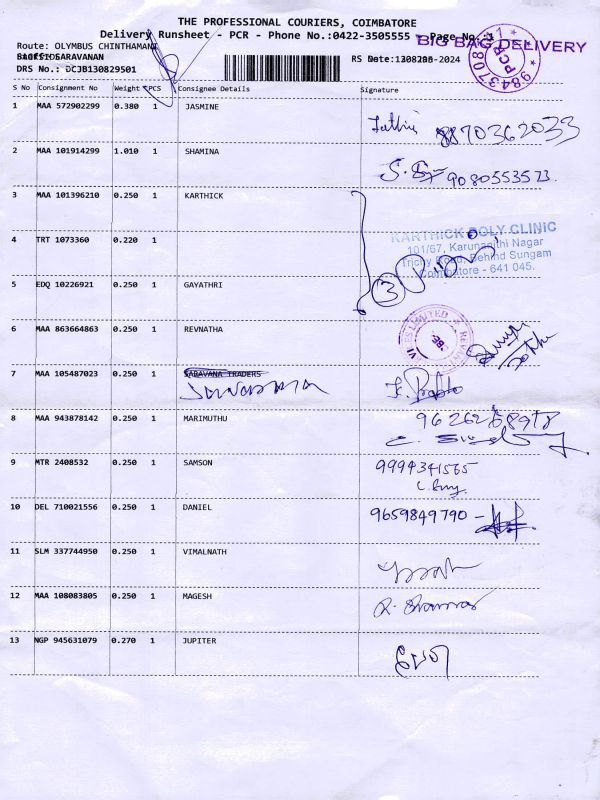 THE PROFESSIONAL COURIERS, COIMBATORE
Delivery Runsheet - PCR - Phone No.:0422-3505555 - Page No.:1
BIG BAG DELIVERY
Route: OLYMBUS CHINTHAMANI
SARAVANAN
DRS No.: DCJB130829501
RS Date:
-2024
PCR
S No Consignment No Weight PCS Consignee Details Signature
1 MAA 572902299 0.380 1 JASMINE
8870362033
2 MAA 101914299 1.010 1 SHAMINA
9080553573
3 MAA 101396210 0.250 1 KARTHICK
KARTHICK POLY CLINIC
101/67, Karunanithi Nagar
Trichy Road, Behind Sungam
Coimbatore - 641 045.
4 TRT 1073360 0.220 1
3
5 EDQ 10226921 0.250 1 GAYATHRI
6 MAA 863664863 0.250 1 REVNATHA
7 MAA 105487023 0.250 1 SARAVANA TRADERS
8 MAA 943878142 0.250 1 MARIMUTHU
9 MTR 2408532 0.250 1 SAMSON
9994341565
10 DEL 710021556 0.250 1 DANIEL
9659849790
11 SLM 337744950 0.250 1 VIMALNATH
12 MAA 108083805 0.250 1 MAGESH
13 NGP 945631079 0.270 1 JUPITER